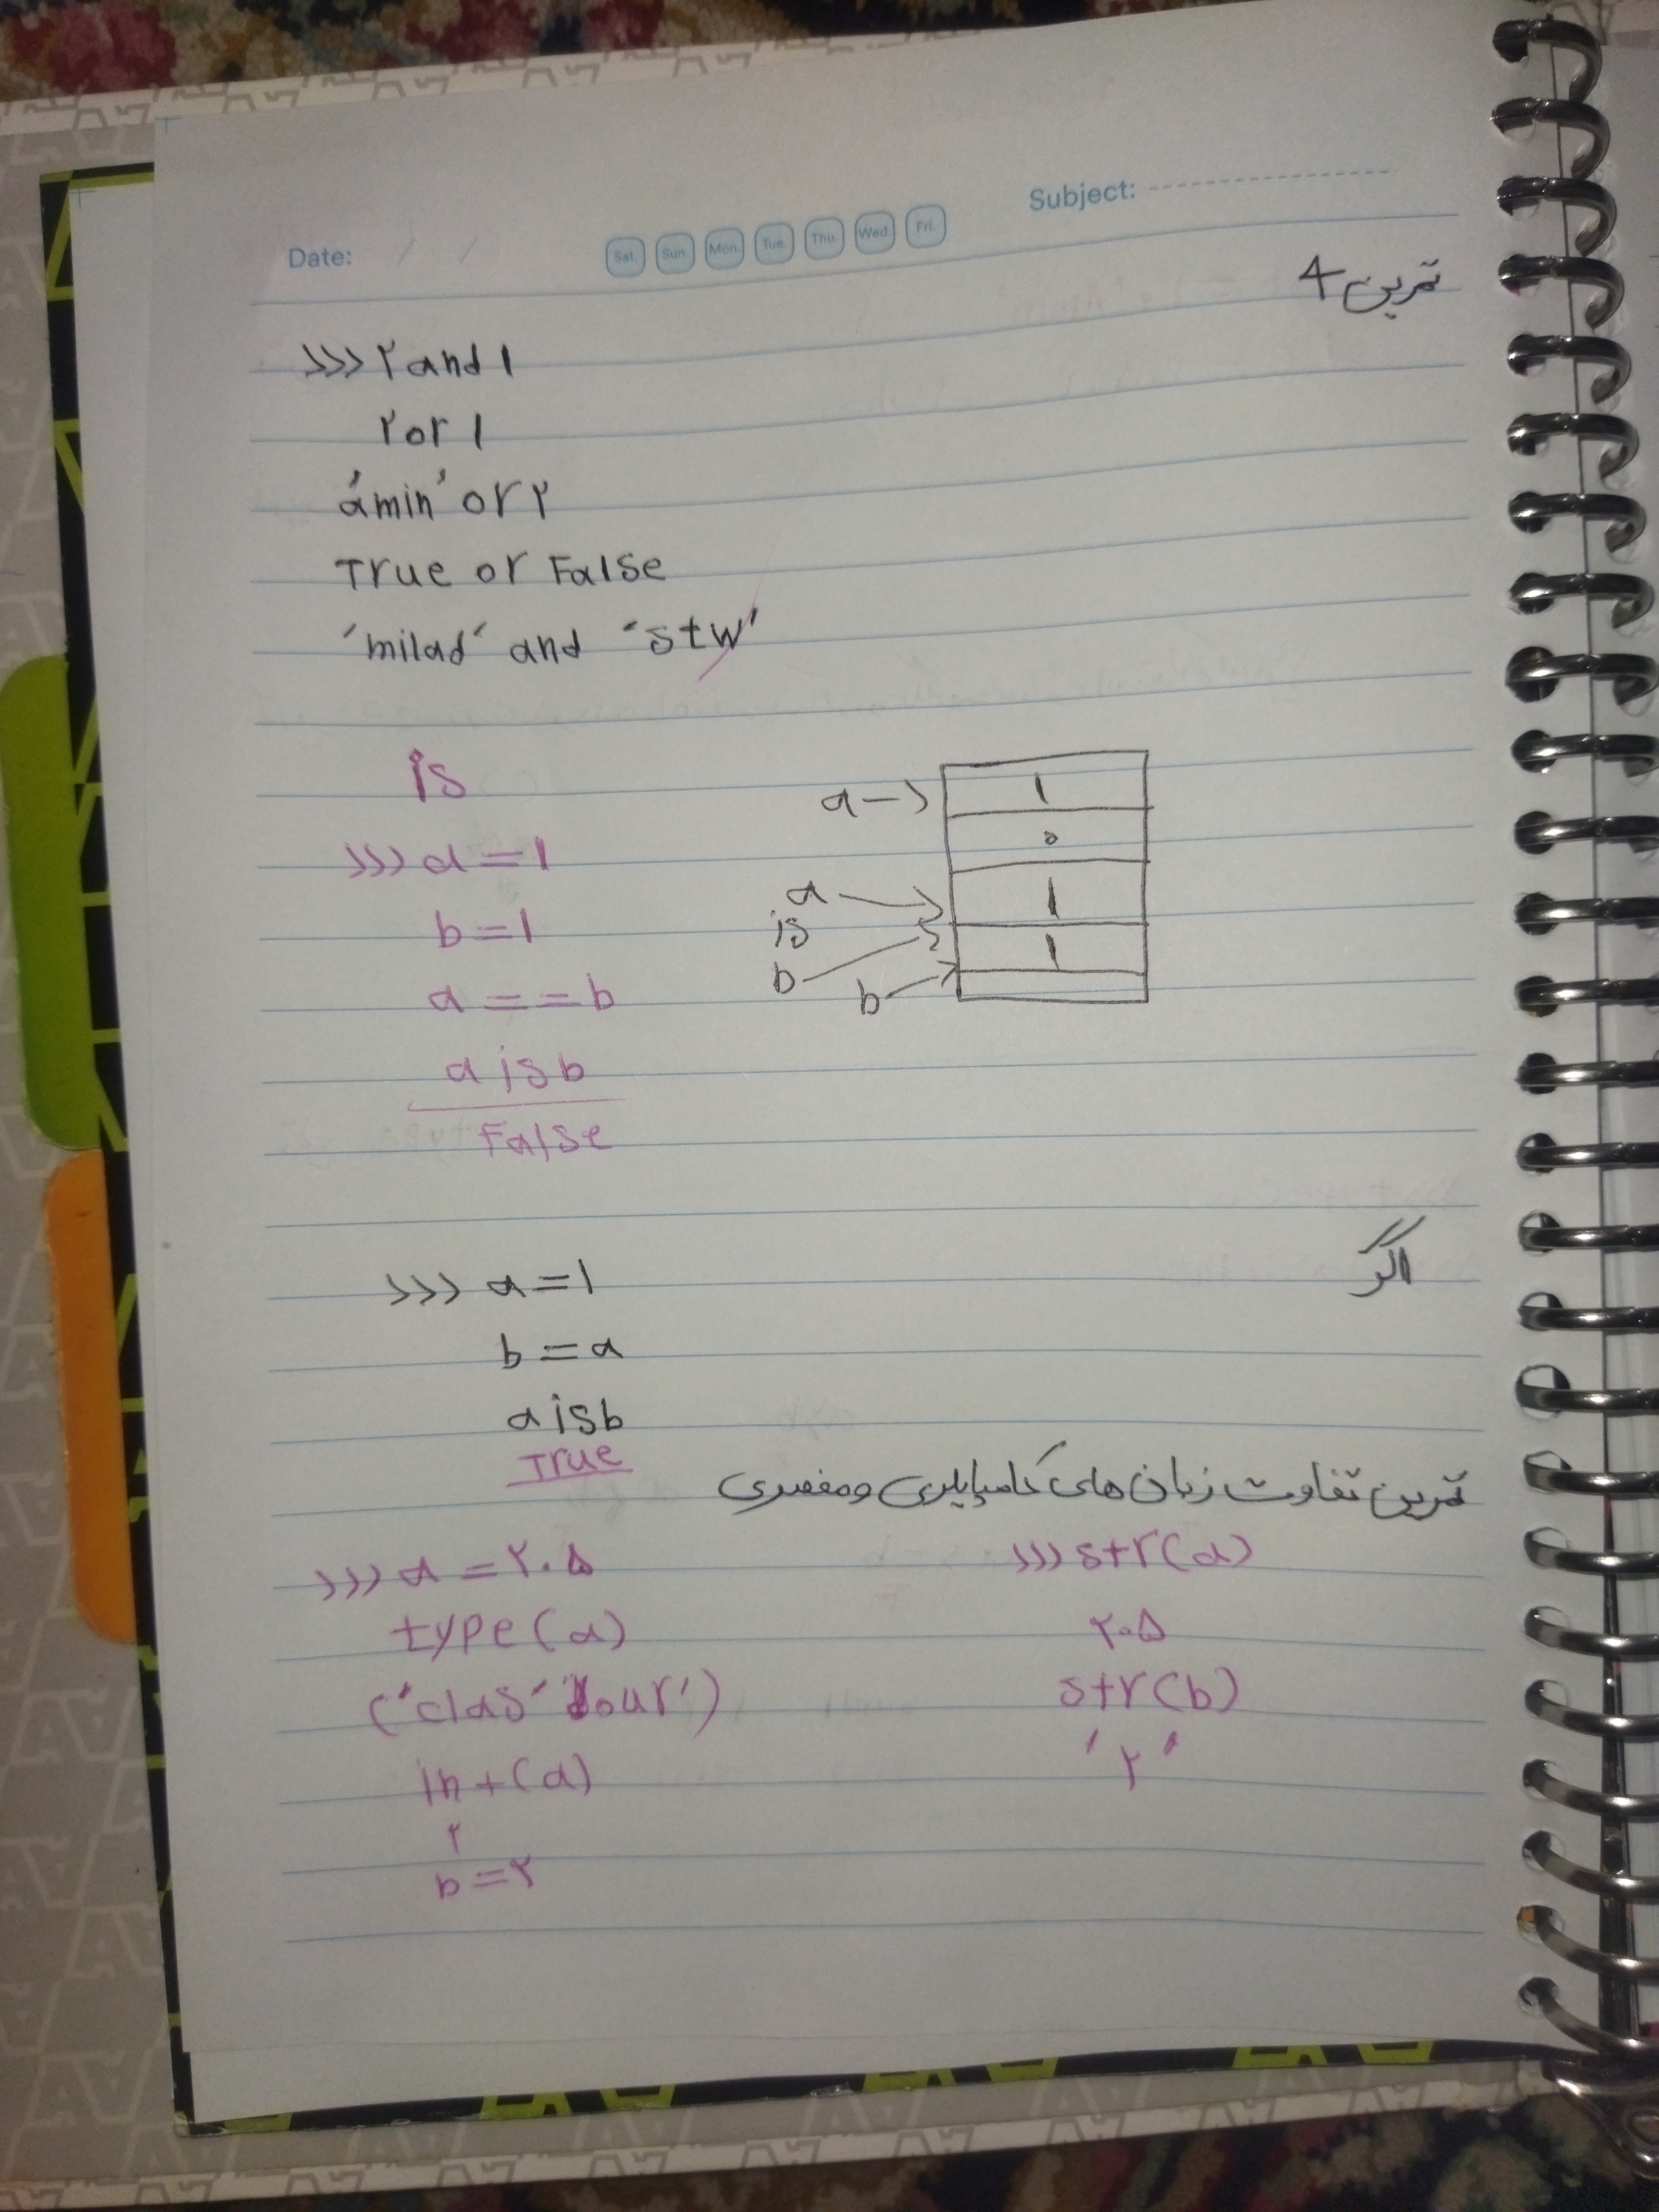 Subject:
Date: / /
Sat. Sun. Mon. Tue. Thu. Wed. Fri.
تمرین 4
>>> ۲ and ۱
۲ or ۱
'amin' or ۲
True or False
'milad' and 'stw'
is
>>> a = 1
b = 1
a == b
a is b
False
a → 1
0
a → 1
is
b → 1
b →
اگر
>>> a = 1
b = a
a is b
True
تمرین تفاوت زبان های کامپایلری و مفصری
>>> a = ۲.۵
type(a)
('clas'
int(a)
۲
b = ۲
>>> str(a)
۲.۵
str(b)
'۲'